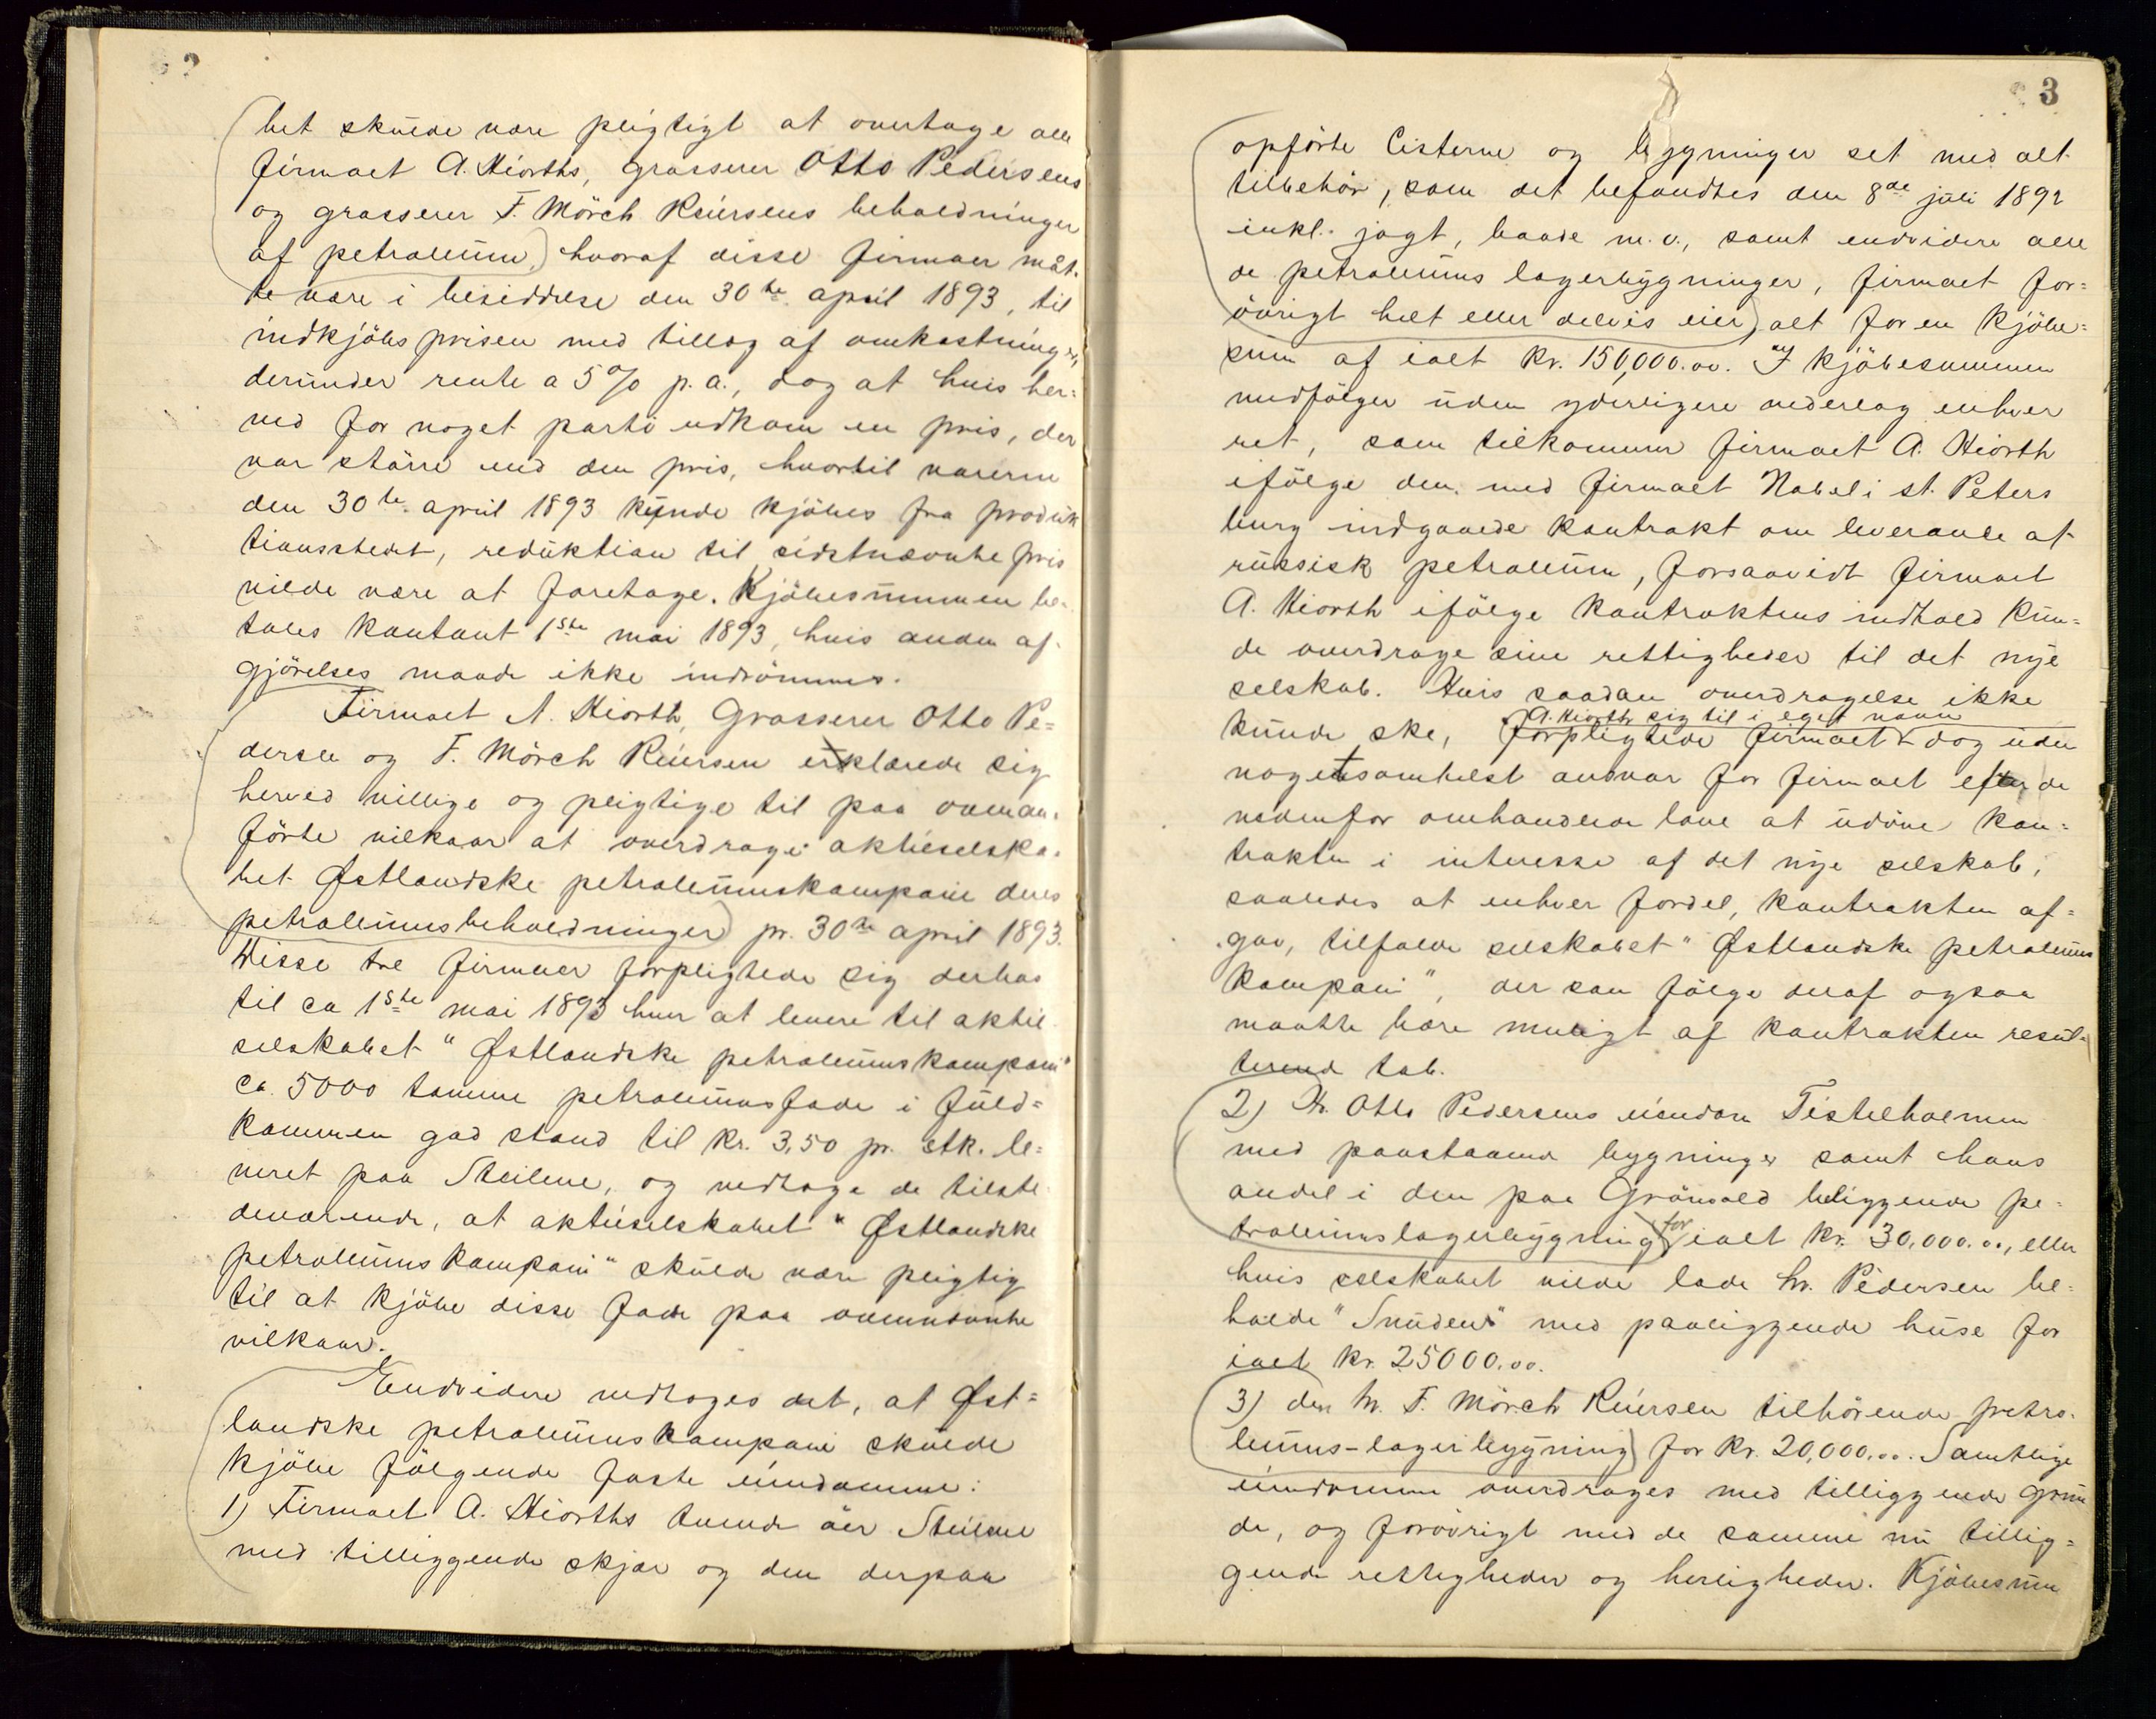 2
bet skulde være pligtigt at overtage alle
firmaet A. Hiorths, grosserer Otto Pedersens
og grosserer F. Mörch Reiersens beholdninger
af petroleum, hvoraf disse firmaer måt-
te være i besiddelse den 30te april 1893, til
indkjöbsprisen med tillæg af omkostninger,
derunder rente a 5% p.a., dog at hvis her-
ved for noget parti udkom en pris, der
var större end den pris, hvortil varerne
den 30te april 1893 kunde kjöbes fra produk
tionsstedet, reduktion til sidstnævnte pris
vilde være at foretage. Kjöbesummen be-
tales kontant 1ste mai 1893, hvis anden af-
gjörelses maade ikke indrömmes.
Firmaet A. Hiorth, Grosserer Otto Pe=
dersen og F. Mörch Reiersen erklærede sig
herved villige og pligtige til paa ovenan-
förte vilkaar at overdrage aktieselska-
bet Østlandske petroleumskompani deres
petroleumsbeholdninger pr. 30te april 1893.
Disse tre firmaer forpligtede sig derhos
til ca 1ste mai 1893 hver at levere til aktie-
selskabet "Østlandske petroleumskompani"
ca. 5000 tomme petroleumsfade i fuld=
kommen god stand til kr. 3,50 pr. stk. le=
veret paa Steilene, og vedtoge de tilste
deværende, at aktieselskabet "Østlandske
petroleumskompani" skulde være pligtig
til at kjöbe disse fade paa ovennævnte
vilkaar.
Endvidere vedtoges det, at Øst=
landske petroleumskompani skulde
kjöbe fölgende faste eiendomme:
1) Firmaet A. Hiorths tvende öer Steilene
med tilliggende skjær og den derpaa
3
opförte Cisterne og bygninger set med alt
tilbehör, som det befandtes den 8de juli 1892
inkl. jagt, baade m.v., samt endvidere alle
de petroleums lagerbygninger, firmaet for=
övrigt helt eller delvis eier, alt for en kjöbe=
sum af ialt kr. 150,000.00. I kjöbesummen
medfölger uden yderligere vederlag enhver
ret, som tilkommer firmaet A. Hiorth
ifölge den med firmaet Nobel i st. Peters
burg indgaaede kontrakt om leverance af
russisk petroleum, forsaavidt firmaet
A. Hiorth ifölge kontraktens indhold kun=
de overdrage sine rettigheder til det nye
selskab. Hvis saadan overdragelse ikke
A. Hiorth sig til i eget navn
kunde ske, forpligtede firmaet dog uden
nogetsomhelst ansvar for firmaet efter de
nedenfor omhandlede love at udöve kon=
trakten i interesse af det nye selskab,
saaledes at enhver fordel, kontrakten af=
gav, tilfaldt selskabet "Østlandske petroleums
kompani", der som fölge deraf ogsaa
maatte bære muligt af kontrakten resul=
terende tab.
2) Hr. Otto Pedersens eiendom Tistelholmen
med paastaaende bygninger samt hans
andel i den paa Grönvold beliggende pe=
troleumslagerbygning for ialt kr. 30,000.00, eller
hvis selskabet vilde lade hr. Pedersen be=
holde "Snuden" med paaliggende huse for
ialt kr. 25000.00.
3) den hr. F. Mörch Reiersen tilhörende petro-
leums-lagerbygning for kr. 20,000.00. Samtlige
eiendomme overdrages med tilliggende grun
de, og forövrigt med de samme nu tillig=
gende rettigheder og herligheder. Kjöbesum